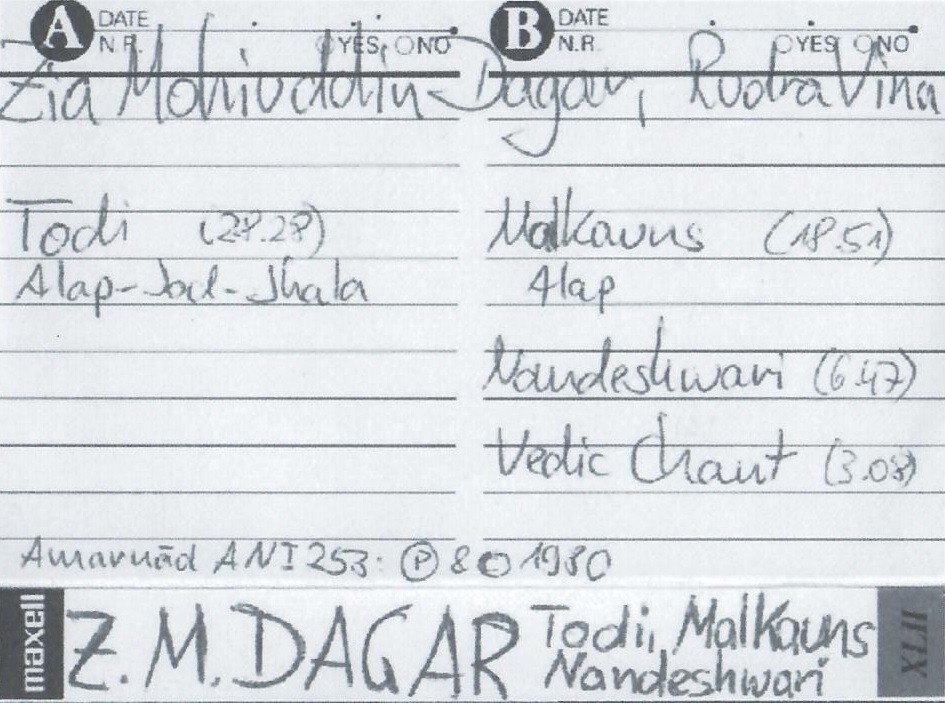 A DATE N.R. YES NO B DATE N.R. YES NO
Zia Mohiuddin Dagar, Rudra Vina
Todi (28.28)
Alap-Jod-Jhala
Malkauns (18.51)
Alap
Nandeshwari (6.47)
Vedic Chant (3.08)
Amarnād ANI 253: Ⓟ & © 1980
maxell Z. M. DAGAR Todi, Malkauns
Nandeshwari
XLII